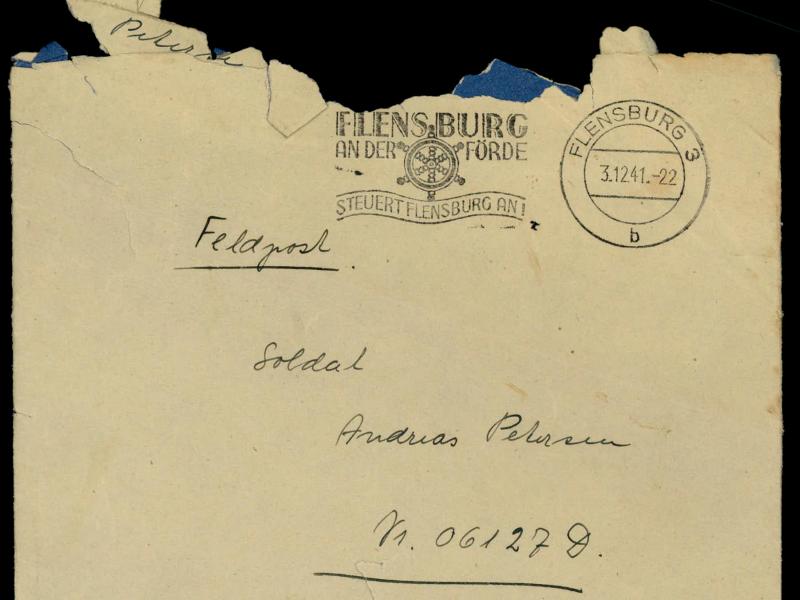 FLENSBURG
AN DER FÖRDE
STEUERT FLENSBURG AN!
FLENSBURG 3
3.12.41.-22
b
Feldpost.
Soldat
Andreas Petersen
Nr. 06127 D.